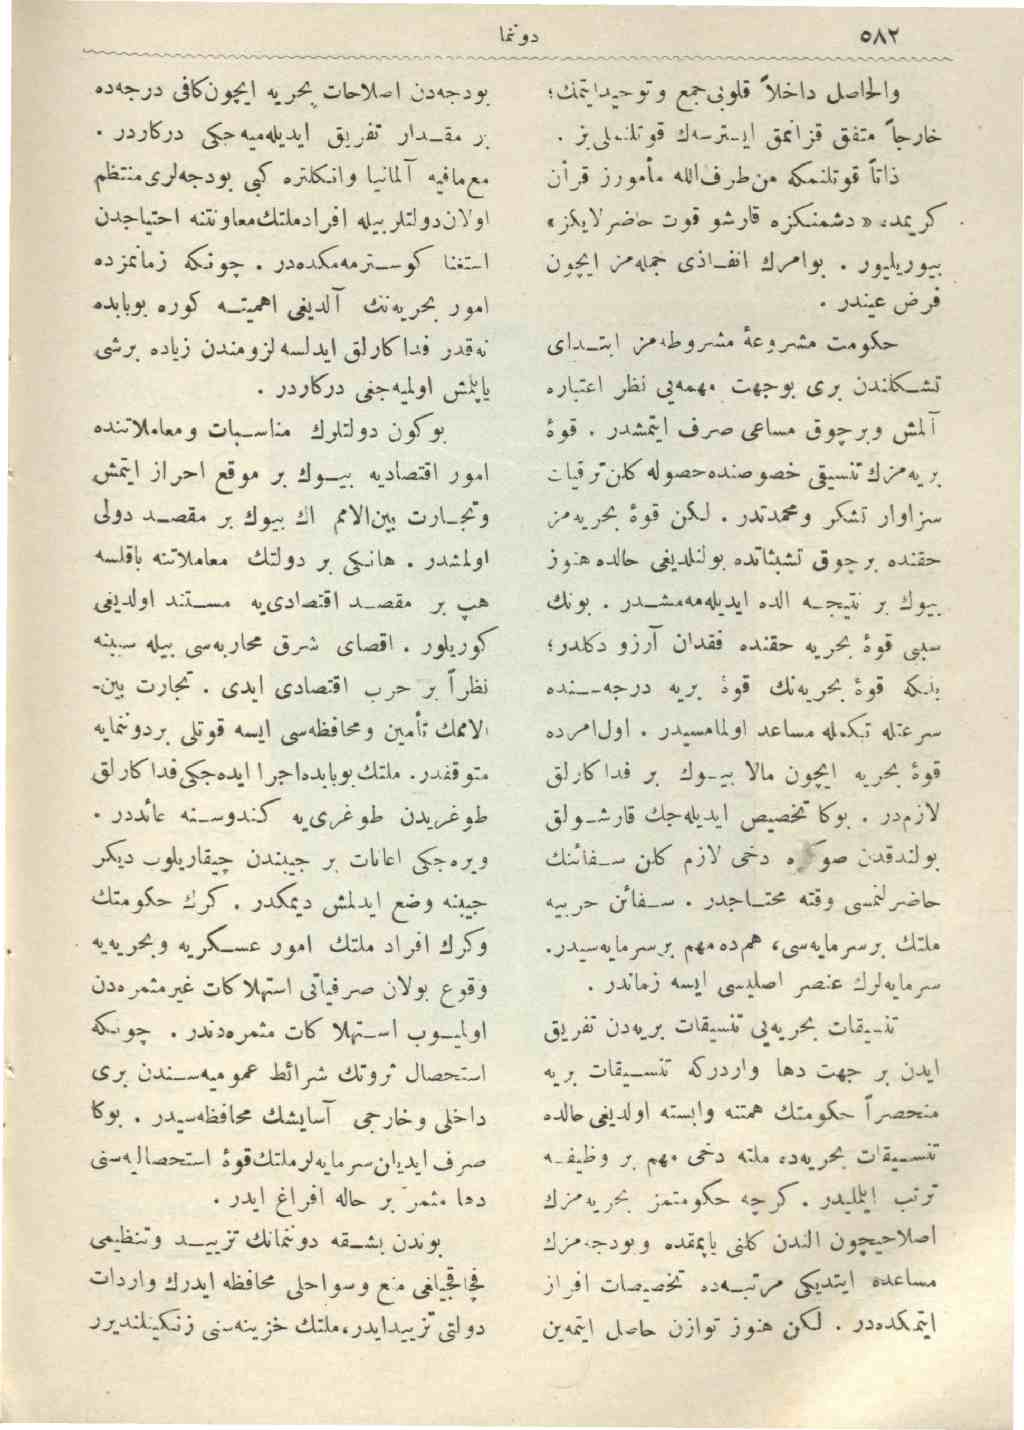 ٥٨٢
دوننما
والحاصل داخلاً قلوبی جمع و توحید ایتمك؛
خارجاً متفق قزانمق ایسترسه‌ك قوتلنملی‌یز .
ذاتاً قوتلنمكه من طرف الله مأمورز قرآن
كریمده « دشمنكزه قارشو قوت حاضرلایكز »
بیوریلیور . بوامرك انفاذی جمله‌مز ایچون
فرض عیندر .
حكومت مشروعۀ مشروطه‌مز ابتدای
تشكلندن بری بوجهت مهمه‌یی نظر اعتباره
آلمش وبرچوق مساعی صرف ایتمشدر . قوۀ
بریه‌مزك تنسیقی خصوصنده حصوله كلن ترقیات
سزاوار تشكر ومحمدتدر . لكن قوۀ بحریه‌مز
حقنده برچوق تشبثاتده بولنلدیغی حالده هنوز
بیوك بر نتیجه الده ایدیله‌مه‌مشدر . بونك
سببی قوۀ بحریه حقنده فقدان آرزو دكلدر؛
بلكه قوۀ بحریه‌نك قوۀ بریه درجه‌سنده
سرعتله تكمله مساعد اولمامسیدر . اول امرده
قوۀ بحریه ایچون مالا بیوك بر فداكارلق
لازم‌در . بوكا تخصیص ایدیله‌جك قارشولق
بولندقدن صوكره دخی لازم كلن سفائنك
حاضرلنمسی وقته محتاجدر . سفائن حربیه
ملتك برسرمایه‌سی، هم‌ده مهم برسرمایه‌سیدر.
سرمایه‌لرك عنصر اصلیسی ایسه زماندر .
تنسیقات بحریه‌یی تنسیقات بریه‌دن تفریق
ایدن بر جهت دها واردركه تنسیقات بریه
منحصراً حكومتك همتنه وابسته اولدیغی حالده
تنسیقات بحریه‌ده ملته دخی مهم بر وظیفه
ترتب ایلملیدر . كرچه حكومتمز بحریه‌مزك
اصلاحیچون الندن كلنی یاپمقده وبودجه‌مزك
مساعده ایتدیكی مرتبه‌ده تخصیصات افراز
ایتمكده‌در . لكن هنوز توازن حاصل ایتمه‌ین
بودجه‌دن اصلاحات بحریه ایچون كافی درجه‌ده
بر مقدار تفریق ایدیله‌میه‌جكی دركاردر .
مع‌مافیه آلمانیا وانكلتره كبی بودجه‌لری منتظم
اولان دولتلر بیله افراد ملتك معاونتنه احتیاجدن
استغنا كوسترمه‌مكده‌در . چونكه زمانمزده
امور بحریه‌نك آلدیغی اهمیته كوره بوبابده
نه‌قدر فداكارلق ایدلسه لزومندن زیاده برشی
یاپلمش اولمیه‌جغی دركاردر .
بوكون دولتلرك مناسبات ومعاملاتنده
امور اقتصادیه بیوك بر موقع احراز ایتمش
وتجارت بین‌الامم اك بیوك بر مقصد دولی
اولمشدر . هانكی بر دولتك معاملاتنه باقلسه
هپ بر مقصد اقتصادی‌یه مستند اولدیغی
كوریلور . اقصای شرق محاربه‌سی بیله سببنه
نظراً بر حرب اقتصادی ایدی . تجارت بین-
الاممك تأمین ومحافظه‌سی ایسه قوتلی بردوننمایه
متوقفدر. ملتك بوبابده اجرا ایده‌جكی فداكارلق
طوغریدن طوغری‌یه كندوسنه عائددر .
ویره‌جكی اعانات بر جیبندن چیقاریلوب دیكر
جیبنه وضع ایدلمش دیمكدر . كرك حكومتك
وكرك افراد ملتك امور عسكریه وبحریه‌یه
وقوع بولان صرفیاتی استهلاكات غیرمثمره‌دن
اولمیوب استهلاكات مثمره‌دندر . چونكه
استحصال ثروتك شرائط عمومیه‌سندن بری
داخلی وخارجی آسایشك محافظه‌سیدر . بوكا
صرف ایدیلن سرمایه‌لر ملتك قوۀ استحصالیه‌سنی
دها مثمر بر حاله افراغ ایدر .
بوندن بشقه دوننمانك تزیید وتنظیمی
قچاقچیلغی منع وسواحلی محافظه ایدرك واردات
دولتی تزیید ایدر، ملتك خزینه‌سنی زنكینلندیرر